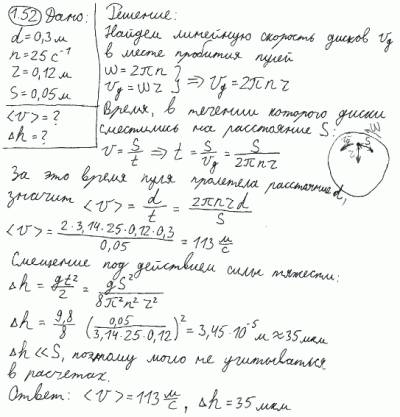 1.52 Дано: Решение:
d=0,3м
n=25 с⁻¹
r=0,12м
S=0,05м
<v>=?
Δh=?
Найдем линейную скорость дисков Vg
в месте пробития пулей
ω=2πn
Vg=ωr } ⇒ Vg=2πnr
Время, в течении которого диски
сместились на расстояние S:
v=S/t ⇒ t=S/Vg=S/2πnr
За это время пуля пролетела расстояние d,
значит <v>=d/t=2πnrd/S
<v>=2·3,14·25·0,12·0,3/0,05=113 м/с
Смещение под действием силы тяжести:
Δh=gt²/2=gS²/8π²n²r²
Δh=9,8/8 (0,05/3,14·25·0,12)²=3,45·10⁻⁵м≈35мкм
Δh≪S, поэтому можно не учитываться
в расчетах.
Ответ: <v>=113 м/с, Δh=35мкм